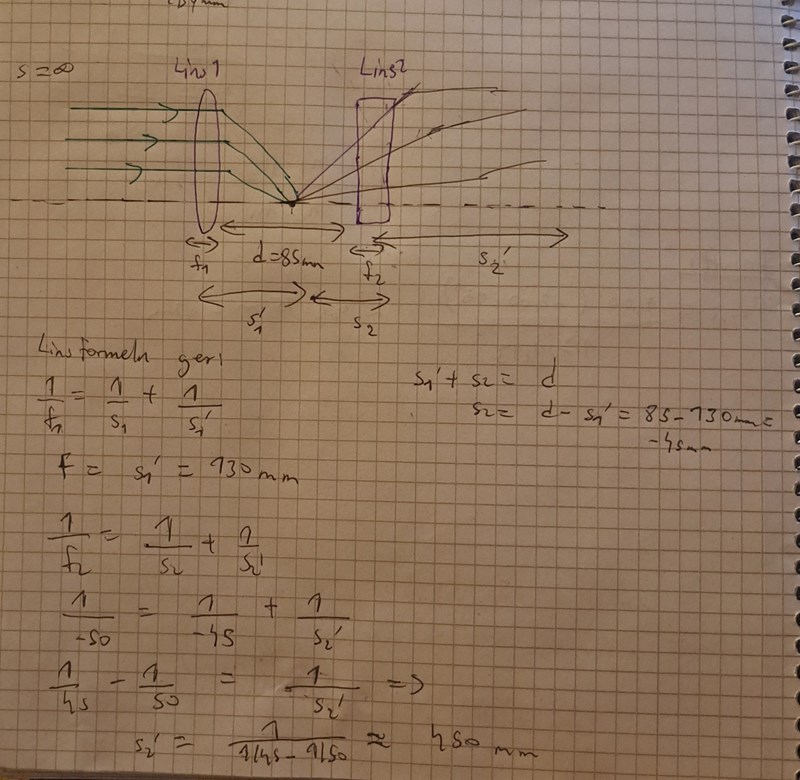 s = ∞
Lins 1
Lins 2
f₁
d = 85mm
f₂
s₂'
s₁'
s₂
Linsformeln ger:
1/f₁ = 1/s₁ + 1/s₁'
s₁' + s₂ = d
s₂ = d - s₁' = 85 - 130mm =
-45mm
F = s₁' = 130mm
1/f₂ = 1/s₂ + 1/s₂'
1/-50 = 1/-45 + 1/s₂'
1/45 - 1/50 = 1/s₂' =>
s₂' = 1/(1/45 - 1/50) ≈ 450 mm